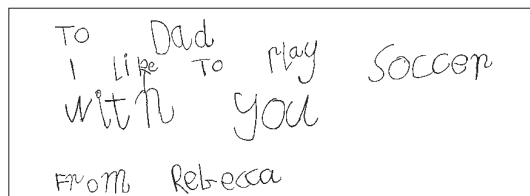 TO Dad
I Like TO Play Soccer
with you
From Rebecca